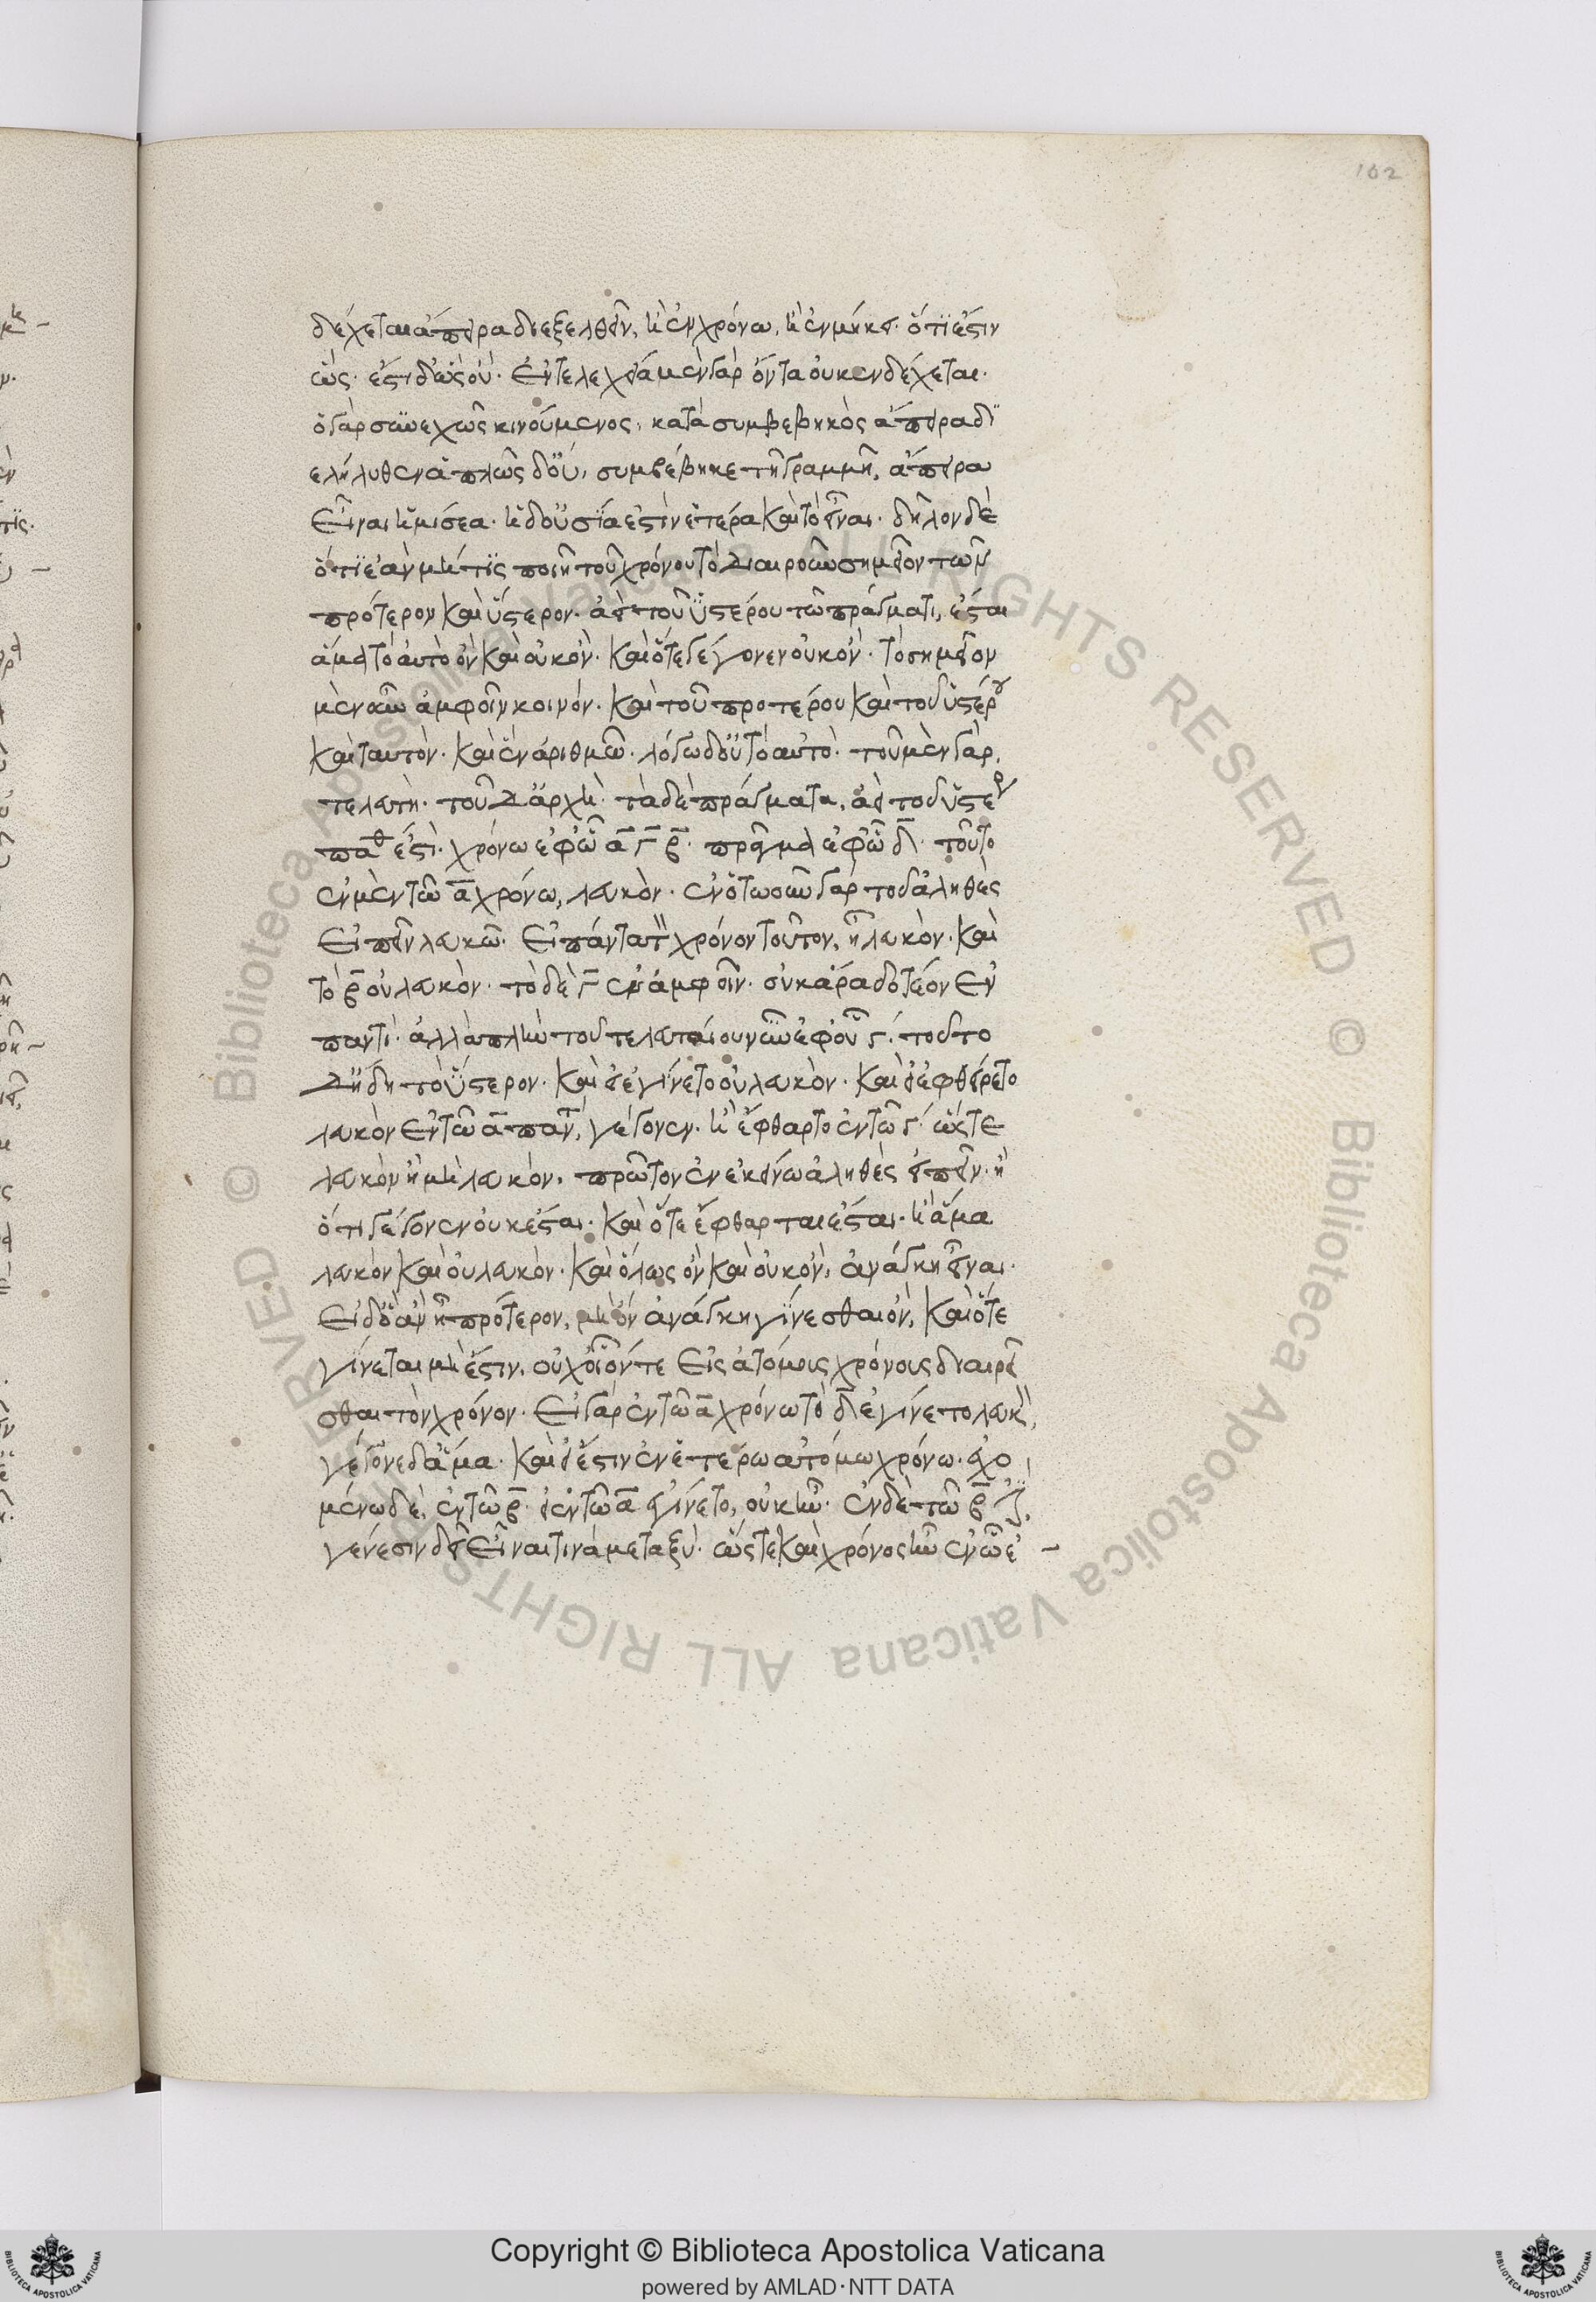 102
δέχεται ἄπειρα διεξελθεῖν, καὶ ἐν χρόνω, καὶ ἐν μήκει. ὅτι ἔστιν
ὡς. ἔστι δ' ὡς οὔ. ἐντελεχεία μὲν γὰρ ὄντα οὐκ ἐνδέχεται.
ὁ γὰρ συνεχῶς κινούμενος, κατὰ συμβεβηκὸς ἄπειρα δι
ελήλυθεν ἁπλῶς δ' οὔ, συμβέβηκε τῆ γραμμῆ, ἄπειρα
εἶναι ἡμίσεα. ἡ δ' οὐσία ἐστὶν ἑτέρα καὶ τὸ εἶναι. δῆλον δὲ
ὅτι ἐὰν μή τις ποιῆ τοῦ χρόνου τὸ διαιροῦν σημεῖον τῶν
πρότερον καὶ ὕστερον. ἀεὶ τοῦ ὑστέρου τῶ πράγματι, ἔσται
ἅμα τὸ αὐτὸ ὂν καὶ οὐκ ὄν. καὶ ὅτε γέγονεν οὐκ ὄν. τὸ σημεῖον
μὲν οὖν ἀμφοῖν κοινόν. καὶ τοῦ προτέρου καὶ τοῦ ὑστέρου
καὶ ταυτὸν. καὶ ἓν ἀριθμῶ. λόγω δ' οὐ τὸ αὐτό. τοῦ μὲν γὰρ,
τελευτὴ. τοῦ δ' ἀρχὴ. τὰ δὲ πράγματα, ἀεὶ τοῦ ὑστέρου
παθ ἐστι. χρόνω ἐφ' ὧ α Γ β. πρᾶγμα ἐφ' ὧ δ. τοῦτο
ἐν μὲν τῶ α χρόνω, λευκὸν. ἐν ὅτωοῦν γὰρ τοῦ ἀληθὲς
εἰπεῖν λευκῶ. εἰ πάντα τὸν χρόνον τοῦτον, ἦ λευκὸν. καὶ
τὸ β οὐ λευκὸν. τὸ δὲ Γ ἐν ἀμφοῖν. οὐκ ἄρα δοτέον ἐν
παντὶ. ἀλλὰ πλὴν τοῦ τελευταίου νῦν ἐφ' οὗ Γ. τοῦτο
δ' ἤδη τὸ ὕστερον. καὶ εἰ ἐγίνετο οὐ λευκὸν. καὶ εἰ ἐφθείρετο
λευκὸν ἐν τῶ α παντὶ, γέγονεν. ἢ ἔφθαρτο ἐν τῶ Γ. ὥστε
λευκὸν ἢ μὴ λευκὸν, πρῶτον ἐν ἐκείνω ἀληθὲς εἰπεῖν. ἢ
ὅτι γέγονεν οὐκ ἔσται. καὶ ὅτε ἔφθαρται ἔσται. ἢ ἅμα
λευκὸν καὶ οὐ λευκὸν. καὶ ὅλως ὂν καὶ οὐκ ὄν, ἀνάγκη εἶναι.
εἰ δ' ὃ ἂν ἦ πρότερον, μὴ ὂν ἀνάγκη γίνεσθαι ὂν, καὶ ὅτε
γίνεται μὴ ἔστιν, οὐχ οἷόν τε εἰς ἀτόμους χρόνους διαιρεῖ
σθαι τὸν χρόνον. εἰ γὰρ ἐν τῶ α χρόνω τὸ δ ἐγίνετο λευκὸν,
γέγονε δ' ἅμα. καὶ ἔστιν ἐν ἑτέρω ἀτόμω χρόνω. ἐχο
μένω δὲ, ἐν τῶ β. εἰ ἐν τῶ α ἐγίνετο, οὐκ ἦν. ἐν δὲ τῶ β ἐστὶ,
γένεσιν δεῖ εἶναι τινὰ μεταξύ. ὥστε καὶ χρόνος ἦν ἐν ὧ ἐ
Copyright © Biblioteca Apostolica Vaticana
powered by AMLAD·NTT DATA